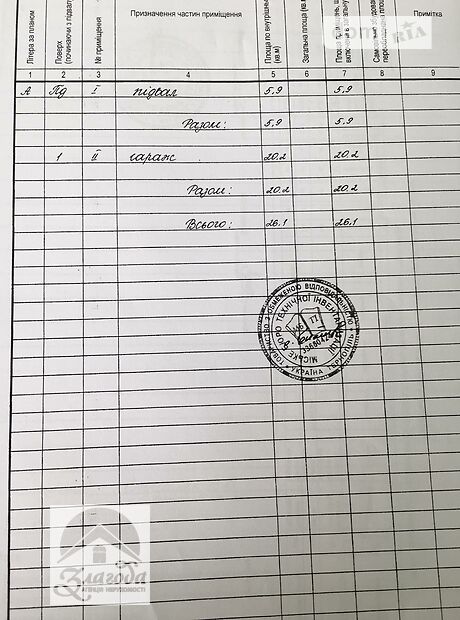 Літера за планом
Поверх (починаючи з підвалу
№ приміщення
Призначення частин приміщення
Площа по внутрішньо (кв.м)
Загальна площа (кв.
Площа
включена в загальну
Примітка
1 2 3 4 5 6 7 8 9
А Пд I підвал 5,9 5,9
Разом: 5,9 5,9
1 II гараж 20.2 20.2
Разом: 20.2 20.2
Всього: 26.1 26.1
ТОВАРИСТВО З ОБМЕЖЕНОЮ ВІДПОВІДАЛЬНІСТЮ
МІСЬКЕ БЮРО ТЕХНІЧНОЇ ІНВЕНТАРИЗАЦІЇ
УКРАЇНА
Злагода
АГЕНЦІЯ НЕРУХОМОСТІ